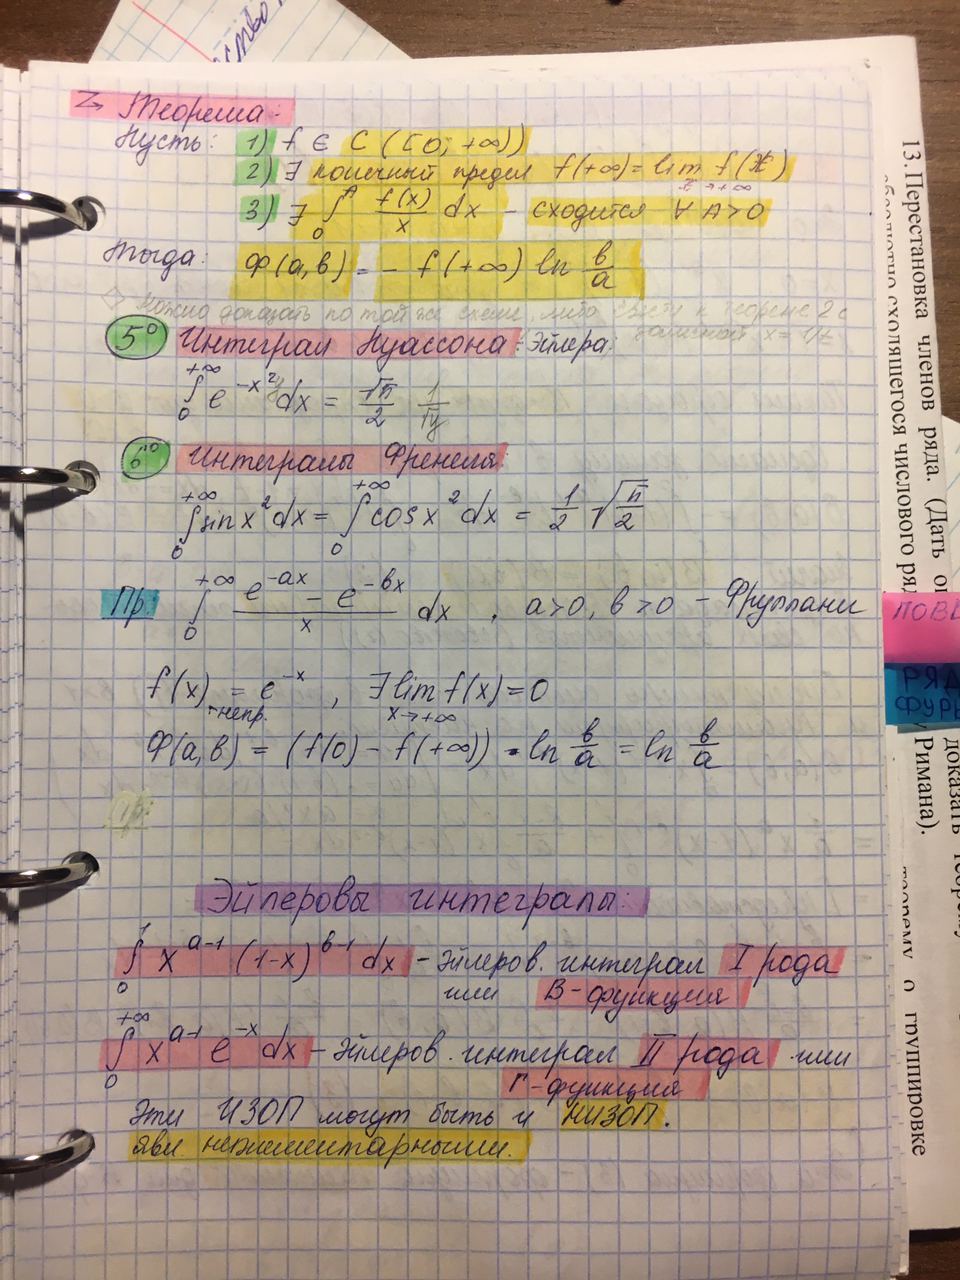 Теорема:
Пусть: 1) f ∈ C ([0; +∞))
2) ∃ конечный предел f(+∞) = lim f(x)
x→+∞
3) ∃ ∫₀ᴬ f(x)/x dx - сходится ∀ A>0
Тогда: Ф(a,b) = - f(+∞) ln b/a
Можно доказать по той же схеме, либо свести к теореме 2 с
заменой x = 1/z
5° Интеграл Пуассона: Эйлера:
∫₀^{+∞} e^{-x²y} dx = √π/2 1/√y
6° Интегралы Френеля:
∫₀^{+∞} sin x² dx = ∫₀^{+∞} cos x² dx = 1/2 √(π/2)
Пр: ∫₀^{+∞} (e^{-ax} - e^{-bx})/x dx , a>0, b>0 - Фруллани
f(x) = e^{-x} , ∃ lim f(x) = 0
непр. x→+∞
Ф(a,b) = (f(0) - f(+∞)) · ln b/a = ln b/a
Пр
Эйлеровы интегралы:
∫₀¹ x^{a-1} (1-x)^{b-1} dx - эйлеров. интеграл I рода
или B-функция
∫₀^{+∞} x^{a-1} e^{-x} dx - эйлеров. интеграл II рода или
Г-функция
Эти ИЗОП могут быть и НИЗОП.
явл.
13. Перестановка членов ряда. (Дать
сходящегося числового
доказать
Римана).
теорему о группировке
ПОВЕ
РЯД
ФУРЬ